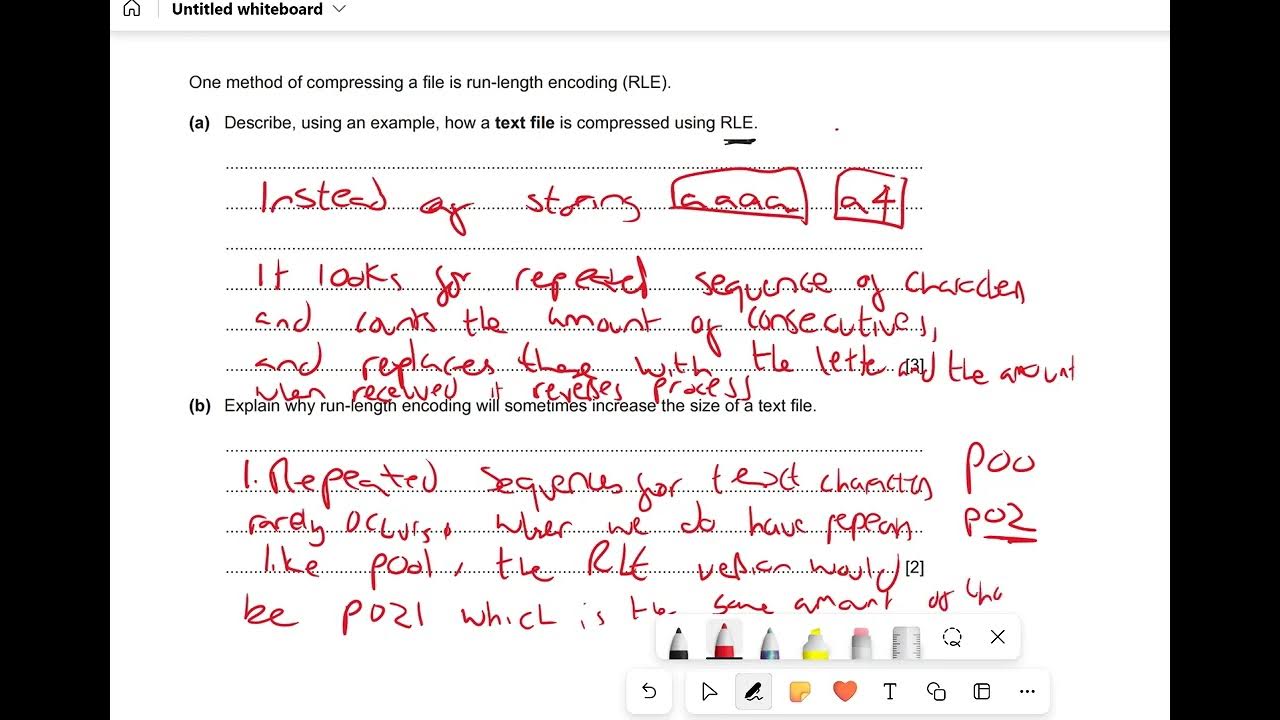 Untitled whiteboard
One method of compressing a file is run-length encoding (RLE).
(a) Describe, using an example, how a text file is compressed using RLE.
Instead of storing aaaa a4
It looks for repeated sequence of characters
and counts the amount of consecutives,
and replaces these with the letter and the amount
[3]
when received it reverses process
(b) Explain why run-length encoding will sometimes increase the size of a text file.
1. Repeated sequences for text characters
poo
rarely occurs, when we do have repeats
po2
like pool, the RLE version would
[2]
be po2l which is the same amount of cha
T